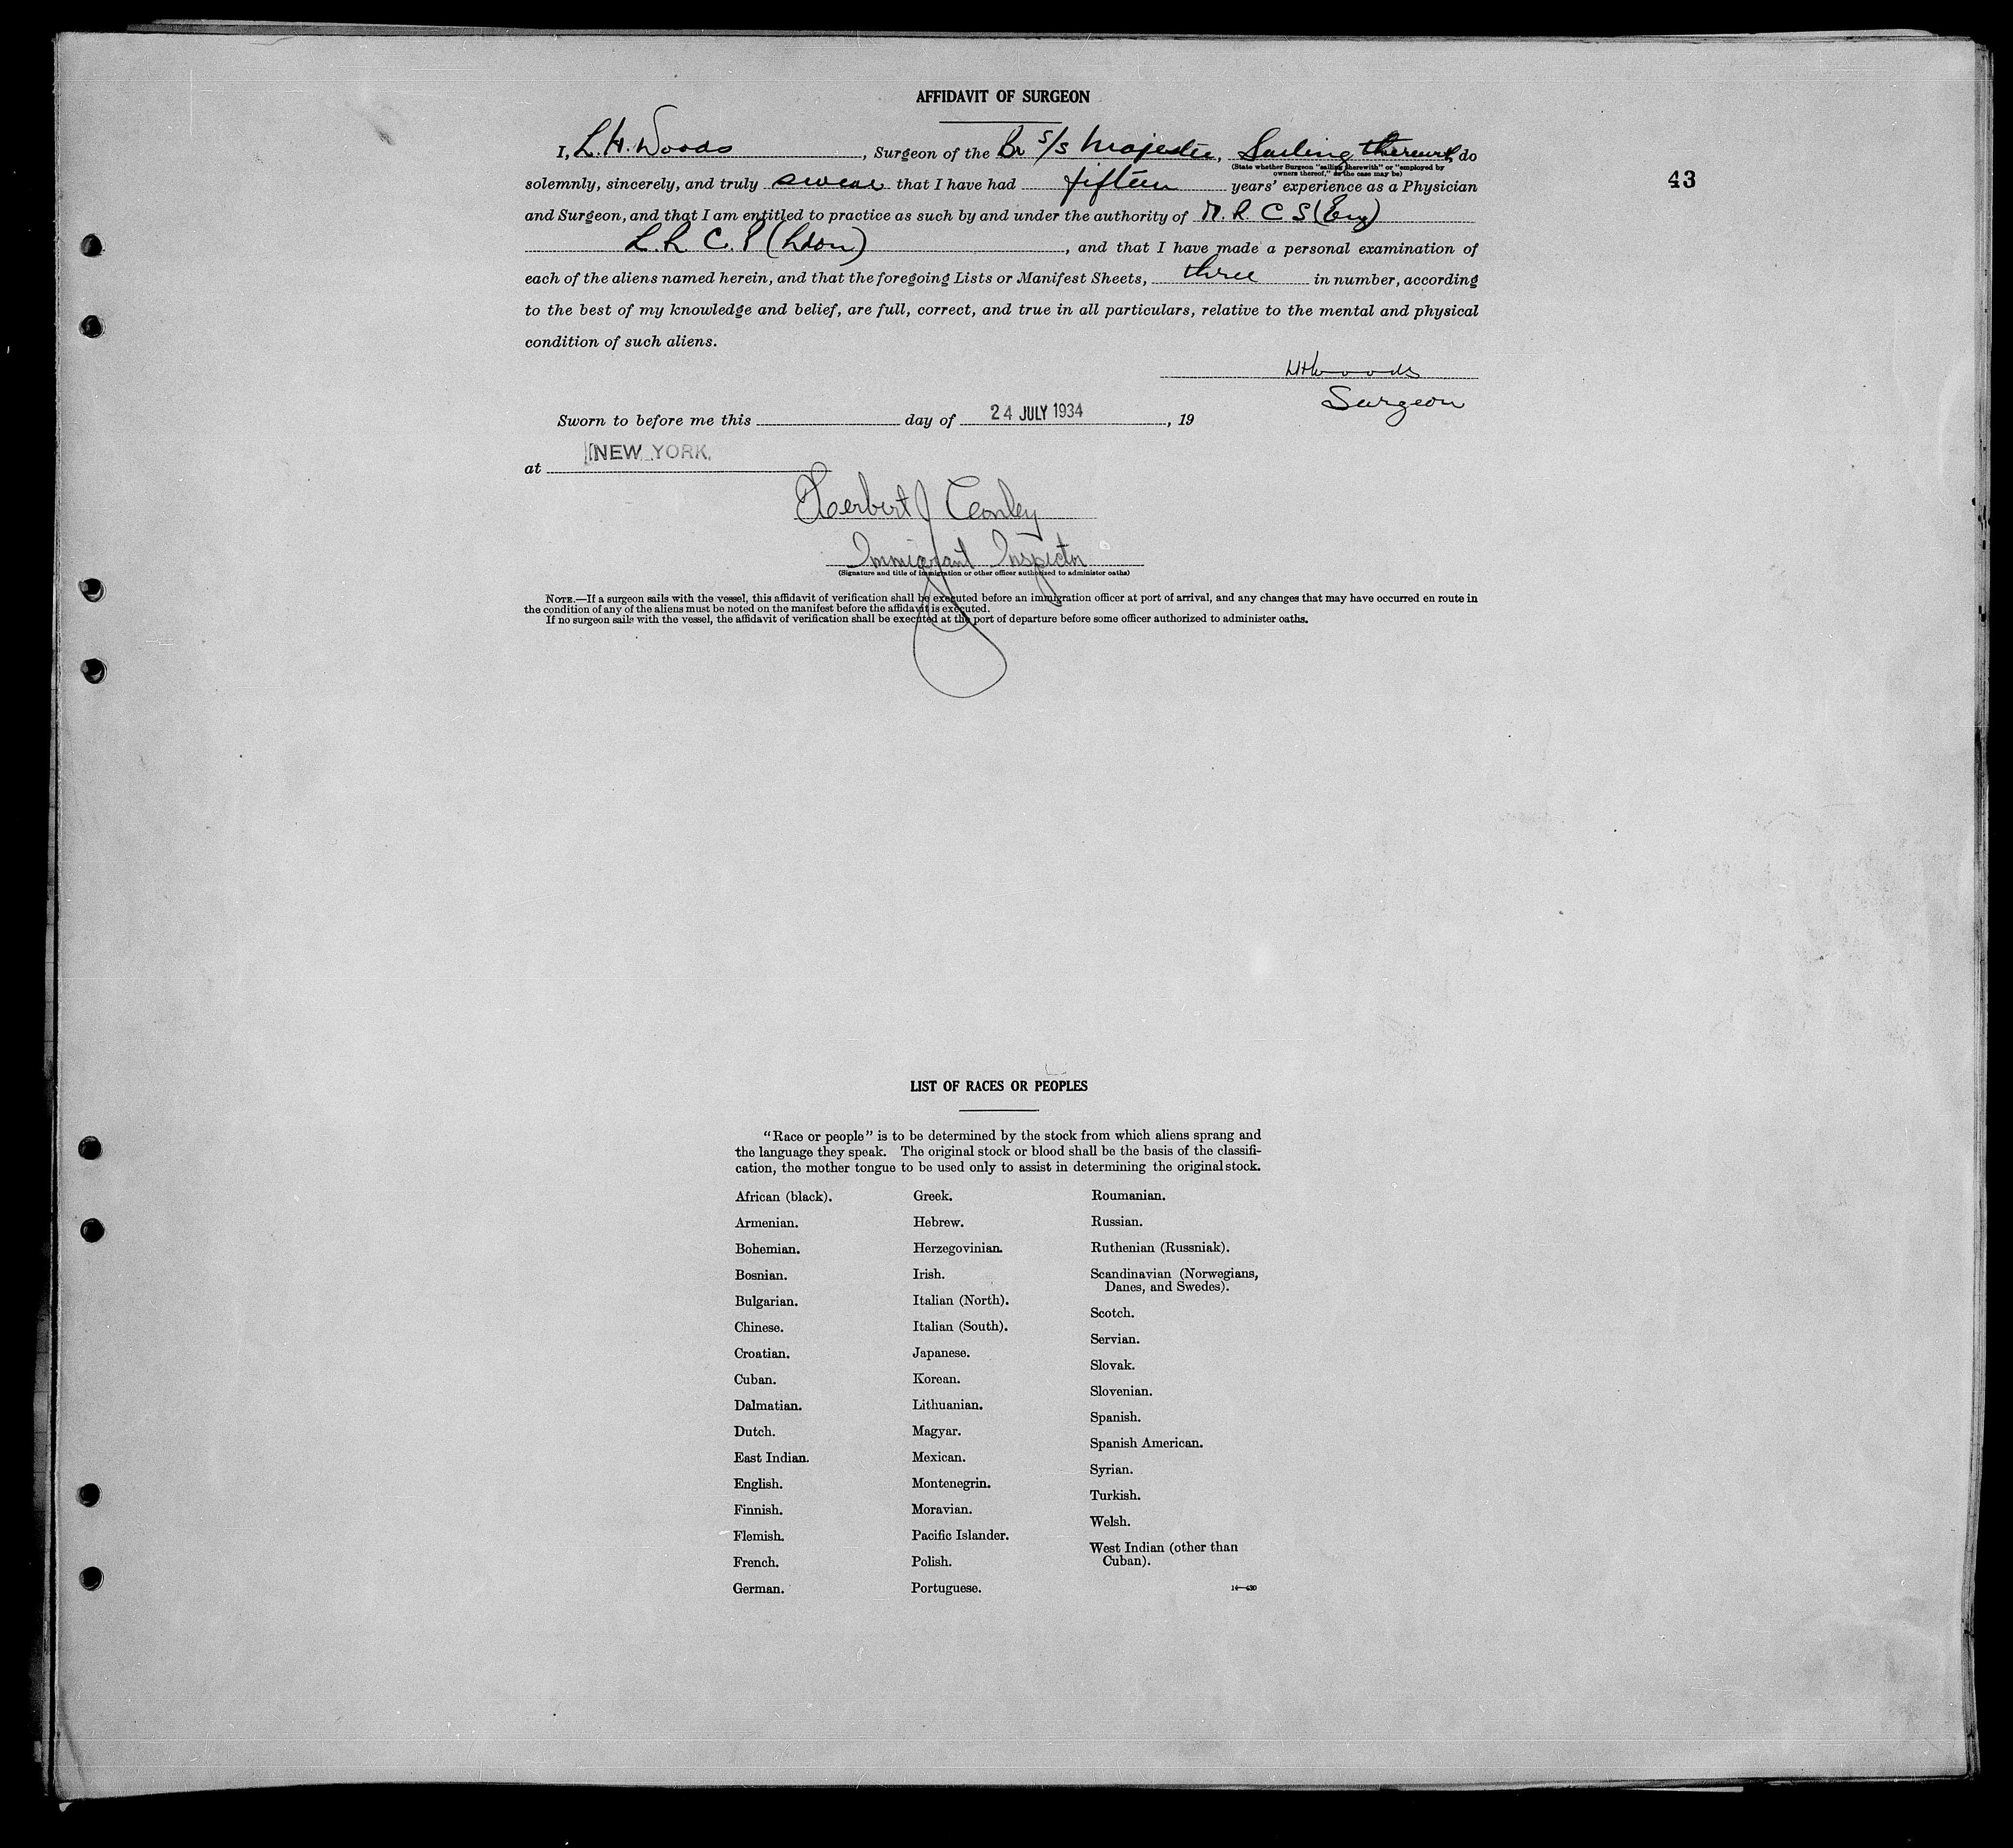 AFFIDAVIT OF SURGEON
I, L. H. Woods, Surgeon of the Br S/S Majestic, Sailing therewith do
(State whether Surgeon "sailing therewith" or "employed by
owners thereof," as the case may be)
43
solemnly, sincerely, and truly swear that I have had fifteen years' experience as a Physician
and Surgeon, and that I am entitled to practice as such by and under the authority of M. R. C S (Eng)
L. R. C. P (Ldon), and that I have made a personal examination of
each of the aliens named herein, and that the foregoing Lists or Manifest Sheets, three in number, according
to the best of my knowledge and belief, are full, correct, and true in all particulars, relative to the mental and physical
condition of such aliens.
LHWoods
Surgeon
Sworn to before me this day of 24 JULY 1934, 19
at NEW YORK.
Herbert J Conley
Immigrant Inspector
(Signature and title of immigration or other officer authorized to administer oaths)
NOTE.—If a surgeon sails with the vessel, this affidavit of verification shall be executed before an immigration officer at port of arrival, and any changes that may have occurred en route in
the condition of any of the aliens must be noted on the manifest before the affidavit is executed.
If no surgeon sails with the vessel, the affidavit of verification shall be executed at the port of departure before some officer authorized to administer oaths.
LIST OF RACES OR PEOPLES
"Race or people" is to be determined by the stock from which aliens sprang and
the language they speak. The original stock or blood shall be the basis of the classifi-
cation, the mother tongue to be used only to assist in determining the original stock.
African (black).
Armenian.
Bohemian.
Bosnian.
Bulgarian.
Chinese.
Croatian.
Cuban.
Dalmatian.
Dutch.
East Indian.
English.
Finnish.
Flemish.
French.
German.
Greek.
Hebrew.
Herzegovinian.
Irish.
Italian (North).
Italian (South).
Japanese.
Korean.
Lithuanian.
Magyar.
Mexican.
Montenegrin.
Moravian.
Pacific Islander.
Polish.
Portuguese.
Roumanian.
Russian.
Ruthenian (Russniak).
Scandinavian (Norwegians,
Danes, and Swedes).
Scotch.
Servian.
Slovak.
Slovenian.
Spanish.
Spanish American.
Syrian.
Turkish.
Welsh.
West Indian (other than
Cuban).
14—430